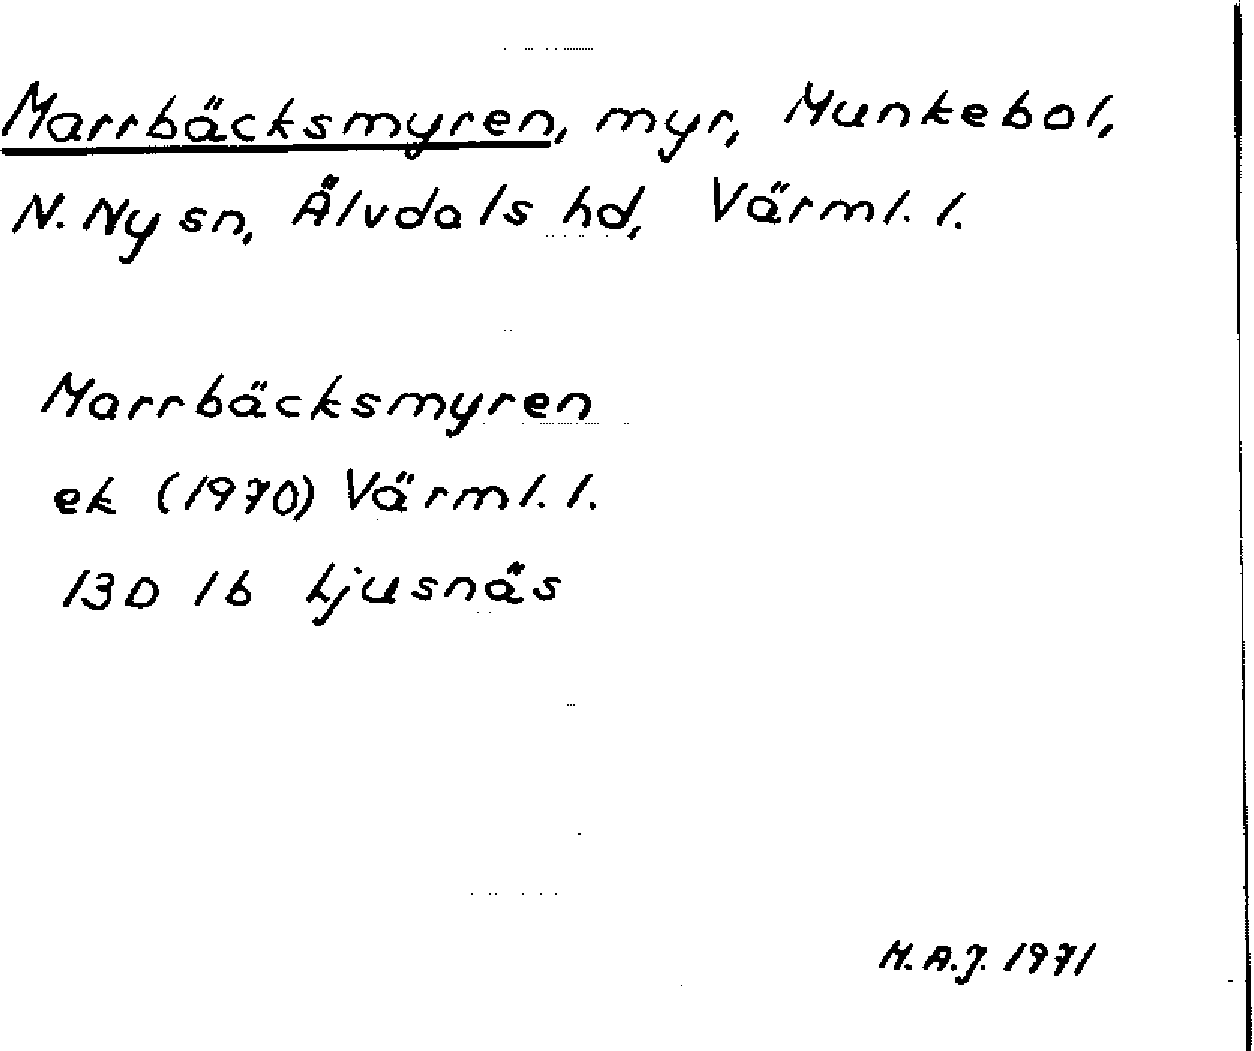 Marrbäcksmyren, myr, Munkebol,
N. Ny sn, Älvdals hd, Värml. l.
Marrbäcksmyren
ek (1970) Värml. l.
13D 1b Ljusnäs
M.A.J. 1971